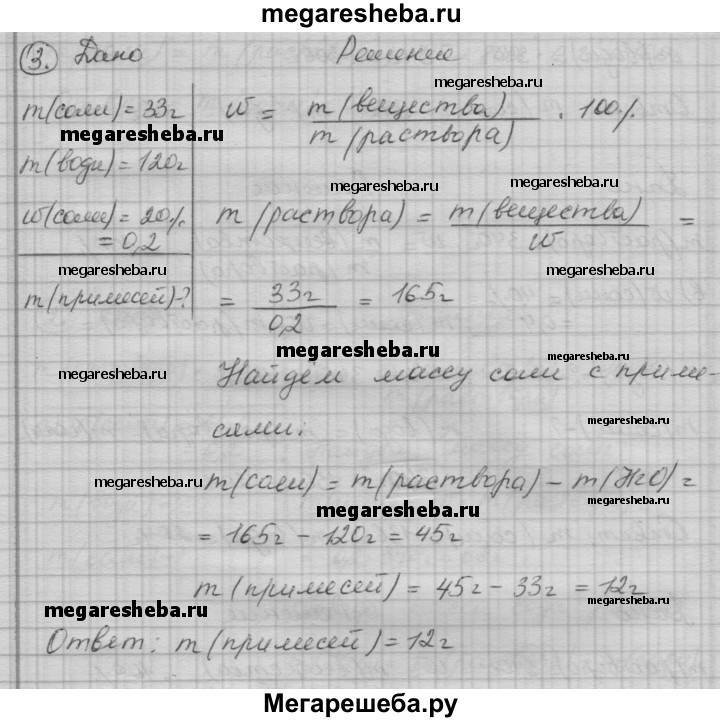 megaresheba.ru
3. Дано Решение
m(соли)=33г w = m(вещества)/m(раствора) · 100%
megaresheba.ru
m(води)=120г
megaresheba.ru megaresheba.ru
w(соли)=20% m(раствора) = m(вещества)/w =
=0,2
megaresheba.ru megaresheba.ru
m(примесей)-? = 33г/0,2 = 165г
megaresheba.ru
megaresheba.ru Найдём массу соли с приме-
megaresheba.ru
сями:
megaresheba.ru m(соли) = m(раствора) – m(H2O) =
megaresheba.ru megaresheba.ru
= 165г – 120г = 45г
m(примесей) = 45г – 33г = 12г
megaresheba.ru megaresheba.ru
Ответ: m(примесей)=12г
Мегарешеба.ру